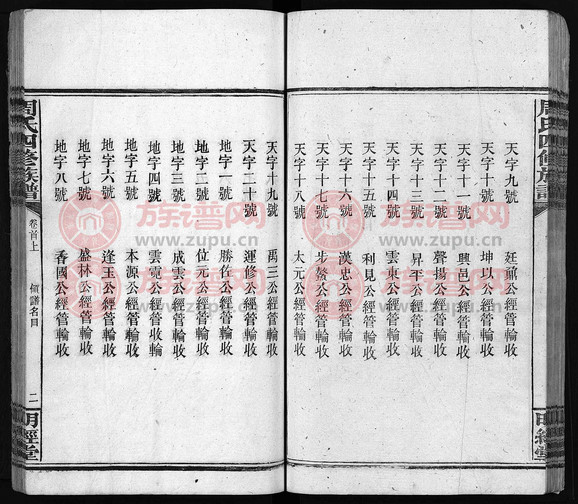 周氏四修族譜
明經堂
天字九號 廷鼐公經管輪收
天字十號 坤以公經管輪收
天字十一號 興邑公經管輪收
天字十二號 聲揚公經管輪收
天字十三號 昇平公經管輪收
天字十四號 雲東公經管輪收
天字十五號 利見公經管輪收
天字十六號 漢忠公經管輪收
天字十七號 步鰲公經管輪收
天字十八號 太元公經管輪收
天字十九號 禹三公經管輪收
天字二十號 運修公經管輪收
地字一號 勝佐公經管輪收
地字二號 位元公經管輪收
地字三號 成雲公經管輪收
地字四號 雲霓公經管輪收
地字五號 本源公經管輪收
地字六號 逢玉公經管輪收
地字七號 盛林公經管輪收
地字八號 香國公經管輪收
周氏四修族譜
卷首上
領譜名目
二
明經堂
族谱网
www.zupu.cn
族谱网
www.zupu.cn